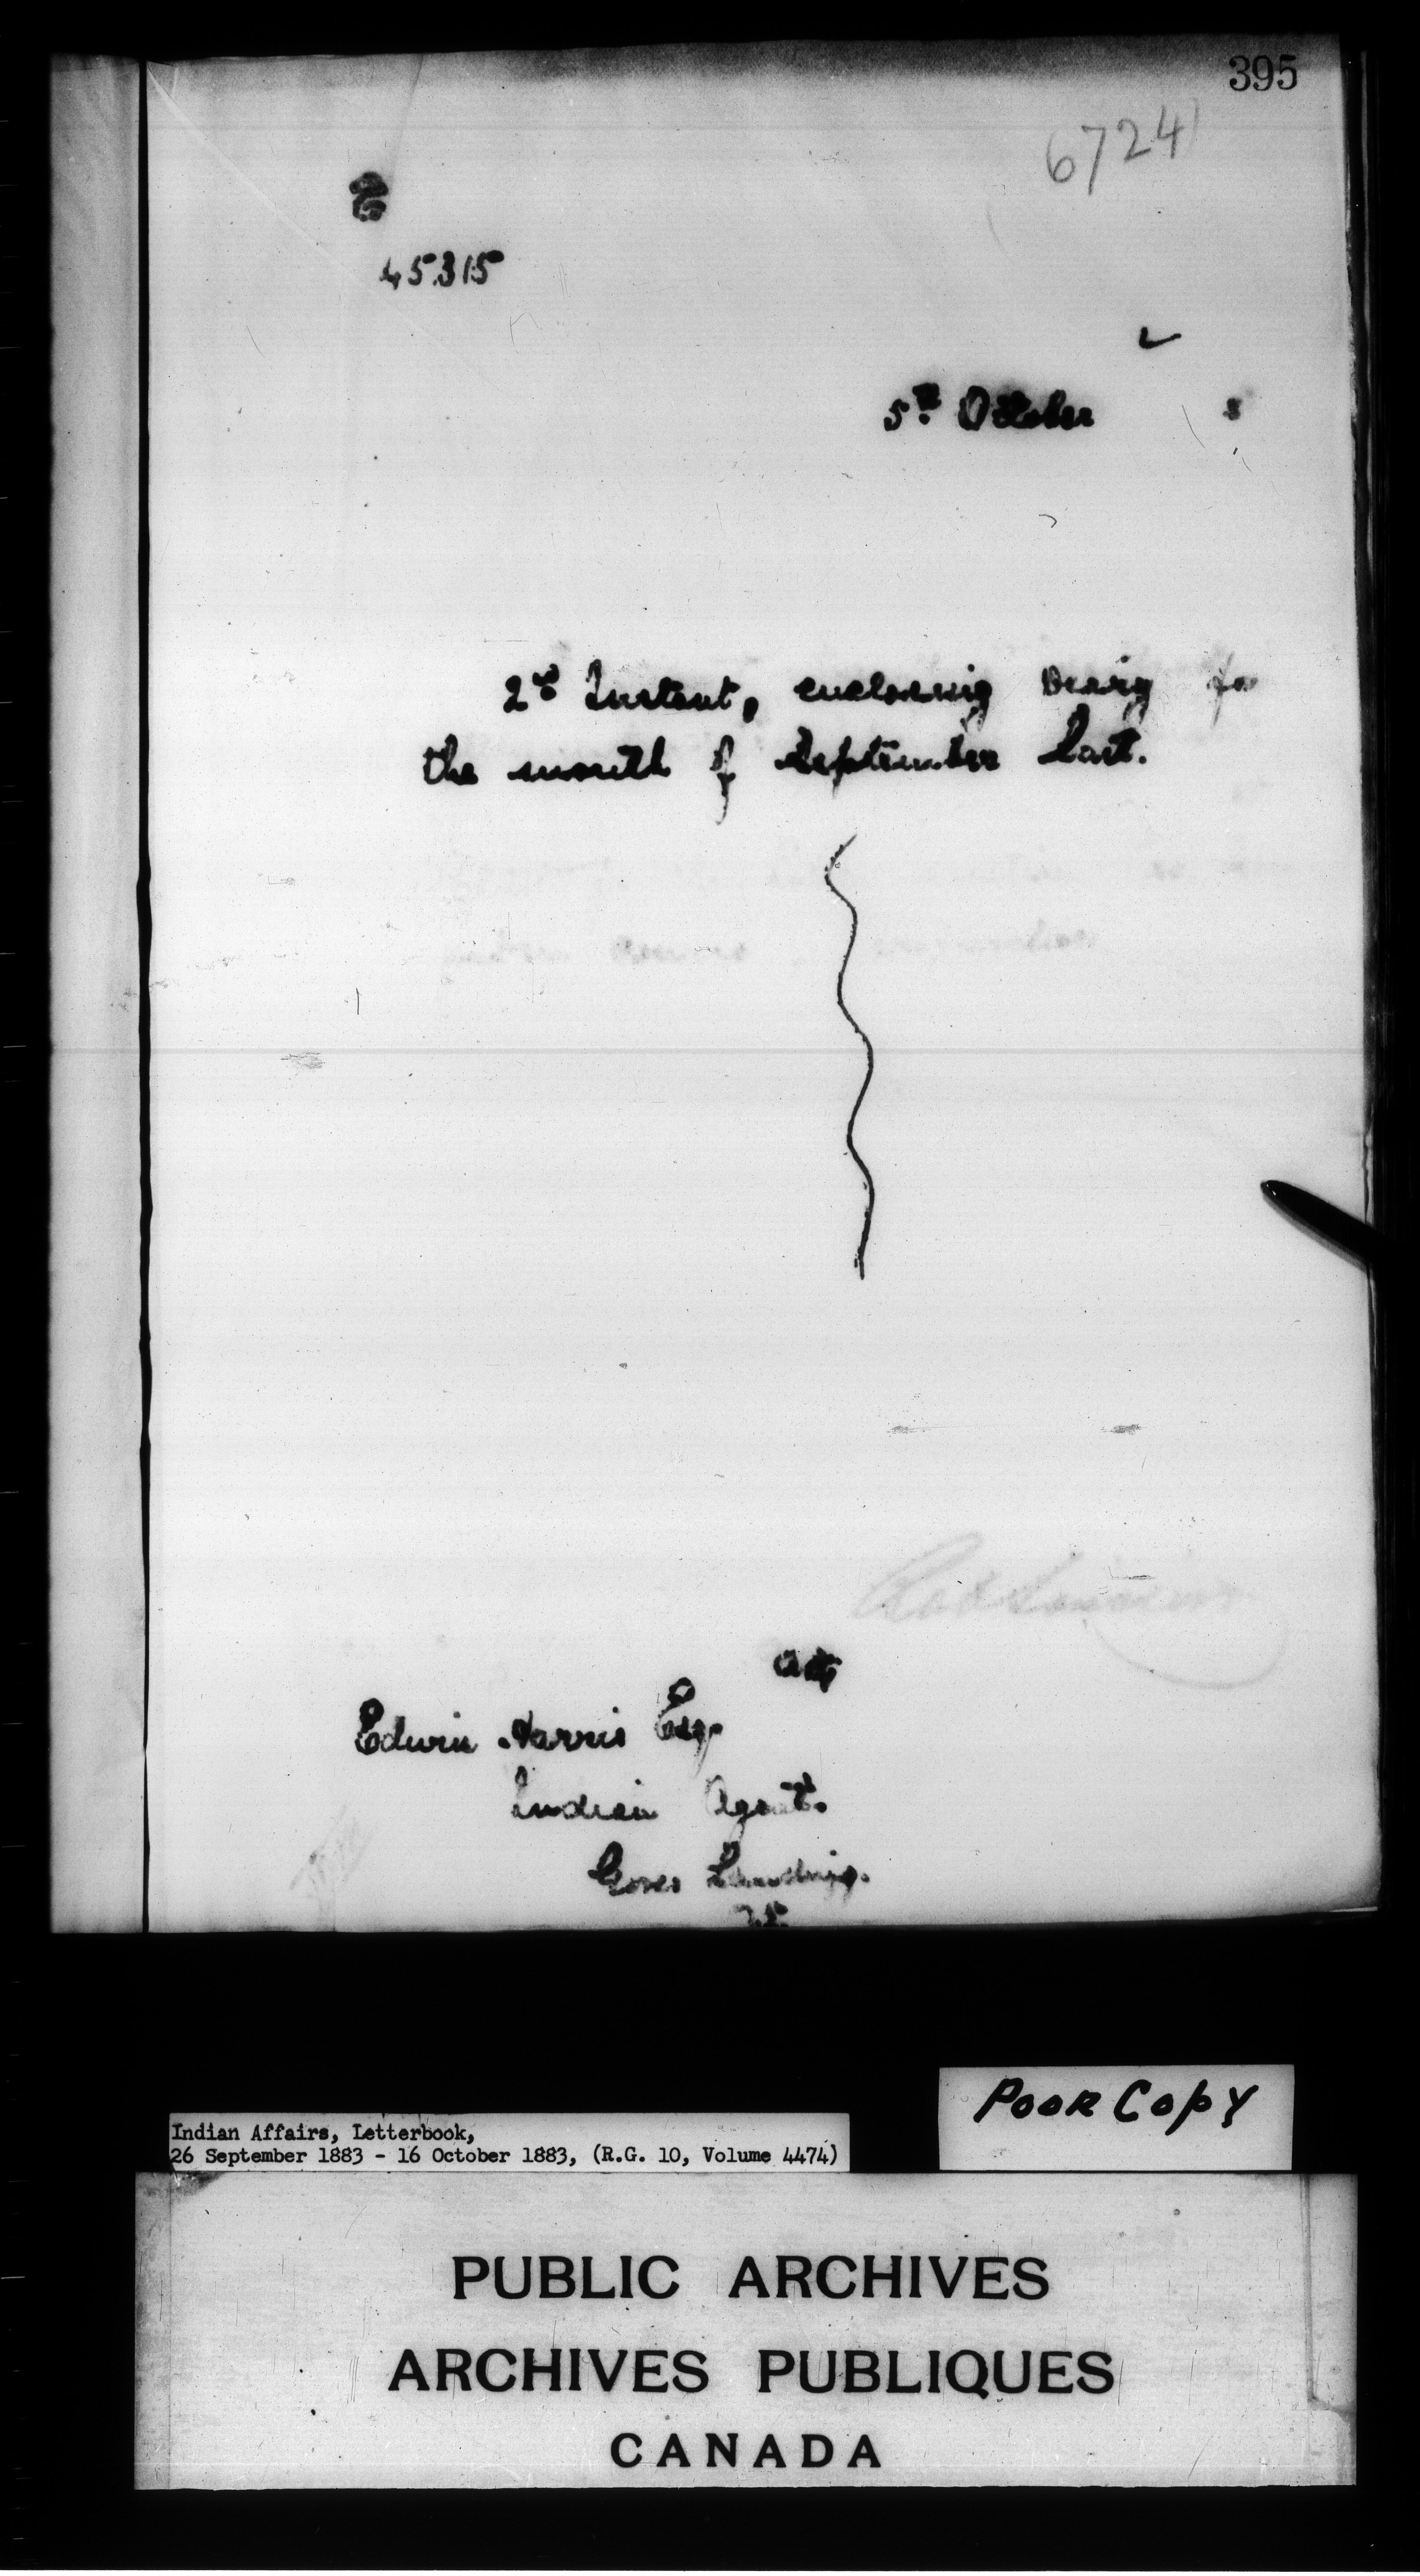 395
6724
45315
5th October 3
2nd Instant, enclosing Diary for
the month of September last.
Edwin Harris Esq
Indian Agent.
Gores Landing.
Poor Copy
Indian Affairs, Letterbook,
26 September 1883 - 16 October 1883, (R.G. 10, Volume 4474)
PUBLIC ARCHIVES
ARCHIVES PUBLIQUES
CANADA